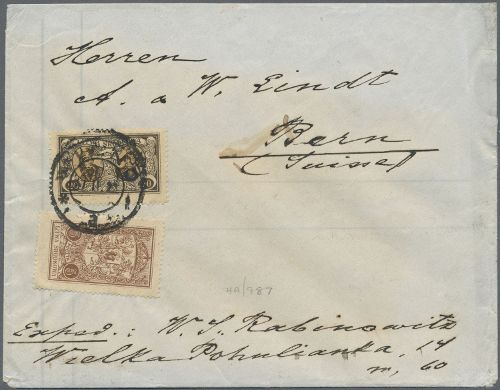 Herren
A. a W. Eindt
Bern
(Suisse)
4A/787
Exped.: W. S. Rabinowitz
Wielka Pohulianka, 14
m, 60